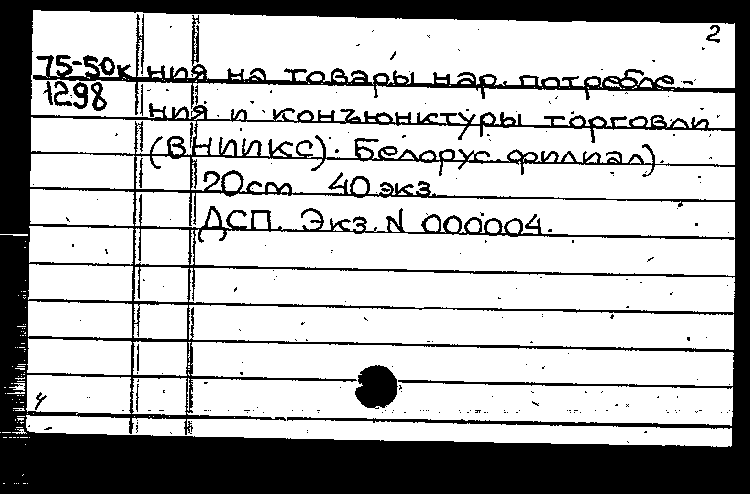 2
75-50к ния на товары нар. потребле-
1298 ния и конъюнктуры торговли
(ВНИИКС). Белорус. филиал).
20 ст 40 экз.
ДСП. Экз. N 000004.
4